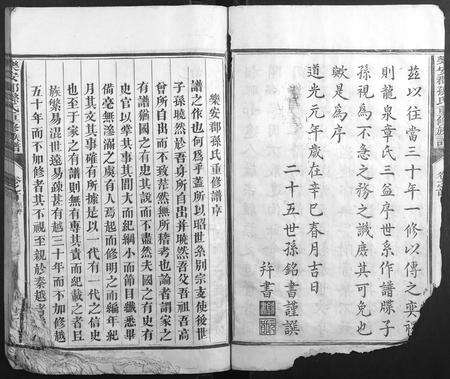 茲以往當三十年一修以傳之奕
則龍泉章氏三益序世系作譜牒子
孫視為不急之務之譏庶其可免也
歟是為序
道光元年歲在辛巳春月吉日
二十五世孫銘書謹譔
并書
樂安郡孫氏重修譜序
譜之作也何為乎蓋所以昭世系別宗支使後世
子孫曉然於吾身所自出并曉然吾父吾祖吾高
曾所自出而不致茫然無所稽考也論者謂家之
有譜猶國之有史其說而不盡然夫國之有史有
史官以掌其事其間大而紀綱小而節目纖悉畢
備毫無滲漏之虞有人焉起而修明之而編年紀
月其文其事確有所據是以一代有一代之信史
也至于家之有譜則無有專其責而紀載之者且
族繁易混世遠易疎甚有越三十年而不加修越
五十年而不加修者其不視至親於秦越者
樂安郡孫氏重修族譜